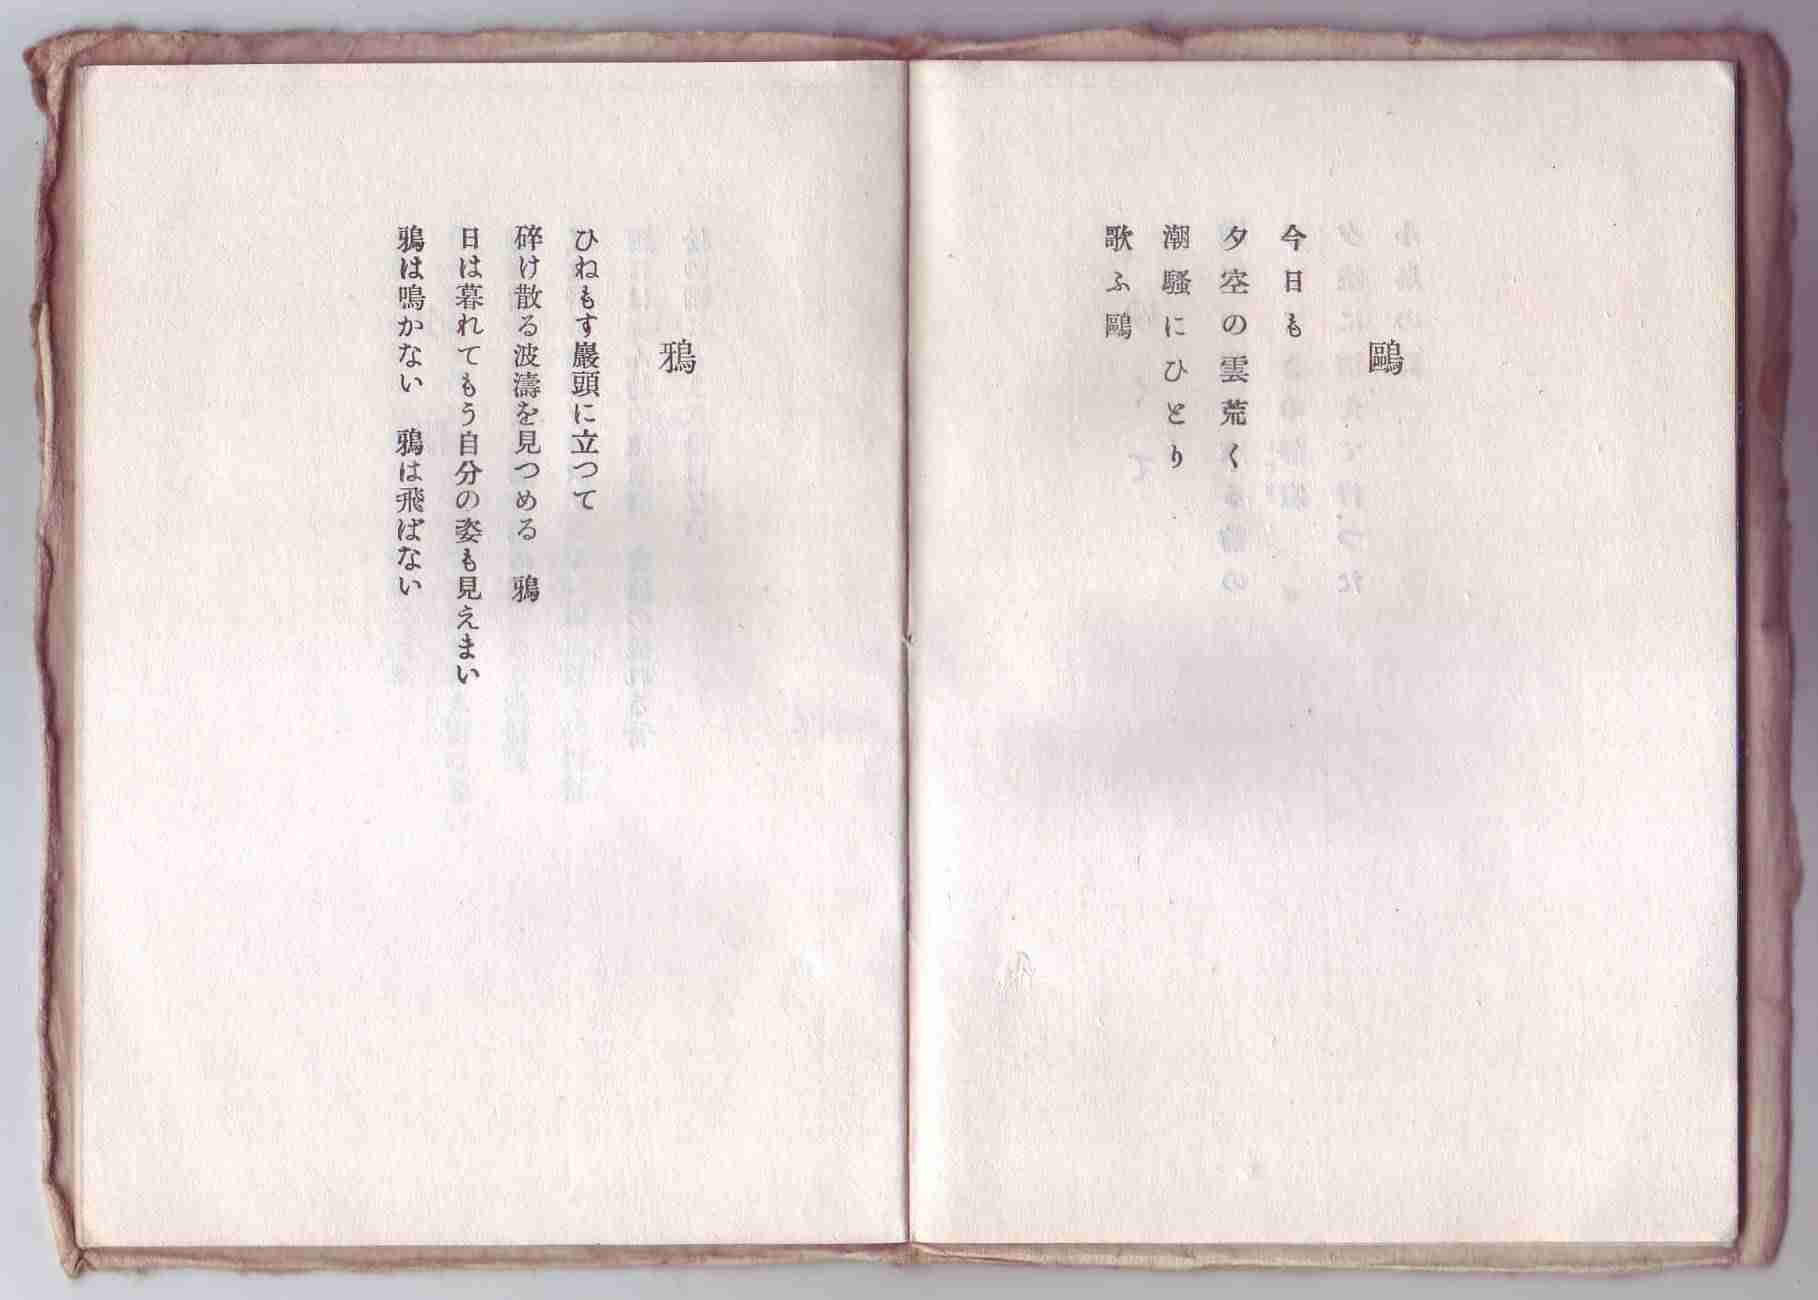 鷗
今日も
夕空の雲荒く
潮騒にひとり
歌ふ鷗
鴉
ひねもす巖頭に立つて
碎け散る波濤を見つめる　鴉
日は暮れてもう自分の姿も見えまい
鴉は鳴かない　鴉は飛ばない